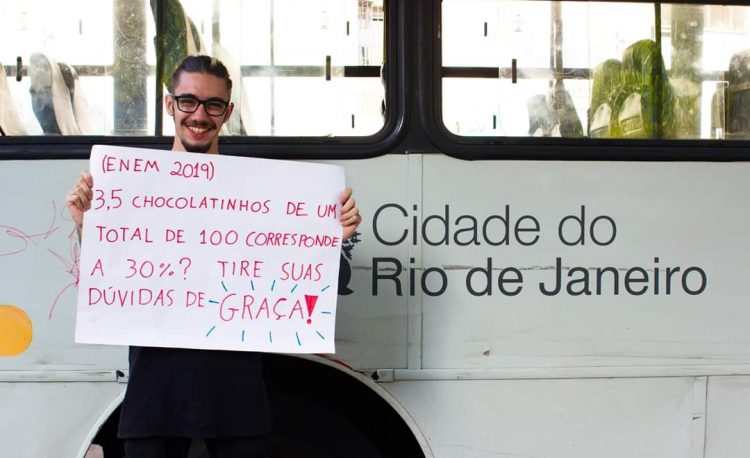 (ENEM 2019)
3,5 CHOCOLATINHOS DE UM
TOTAL DE 100 CORRESPONDE
A 30%? TIRE SUAS
DÚVIDAS DE GRAÇA!
Cidade do
Rio de Janeiro